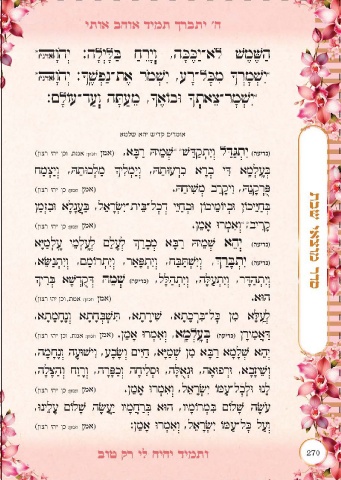 ה' יתברך תמיד אוהב אותי
הַשֶּׁמֶשׁ לֹא־יַכֶּכָּה, וְיָרֵחַ בַּלָּיְלָה: יְהֹוָה
יִשְׁמָרְךָ מִכָּל־רָע, יִשְׁמֹר אֶת־נַפְשֶׁךָ: יְהֹוָה
יִשְׁמָר־צֵאתְךָ וּבוֹאֶךָ, מֵעַתָּה וְעַד־עוֹלָם:
אומרים קדיש יהא שלמא
(כריעה) יִתְגַּדַּל וְיִתְקַדַּשׁ שְׁמֵיהּ רַבָּא. (אמן אמת, וכן יהי רצון)
בְּעָלְמָא דִּי בְרָא כִרְעוּתֵיהּ, וְיַמְלִיךְ מַלְכוּתֵיהּ, וְיַצְמַח
פֻּרְקָנֵיהּ, וִיקָרֵב מְשִׁיחֵיהּ. (אמן כן יהי רצון)
בְּחַיֵּיכוֹן וּבְיוֹמֵיכוֹן וּבְחַיֵּי דְכָל־בֵּית־יִשְׂרָאֵל, בַּעֲגָלָא וּבִזְמַן
קָרִיב, וְאִמְרוּ אָמֵן. (אמן כן יהי רצון)
(כריעה) יְהֵא שְׁמֵיהּ רַבָּא מְבָרַךְ לְעָלַם לְעָלְמֵי עָלְמַיָּא
(כריעה) יִתְבָּרַךְ, וְיִשְׁתַּבַּח, וְיִתְפָּאַר, וְיִתְרוֹמַם, וְיִתְנַשֵּׂא,
וְיִתְהַדָּר, וְיִתְעַלֶּה, וְיִתְהַלָּל, (כריעה) שְׁמֵהּ דְּקֻדְשָׁא בְּרִיךְ
הוּא. (אמן אמת, וכן יהי רצון)
לְעֵלָּא מִן כָּל־בִּרְכָתָא, שִׁירָתָא, תִּשְׁבְּחָתָא וְנֶחָמָתָא,
דַּאֲמִירָן (כריעה) בְּעָלְמָא, וְאִמְרוּ אָמֵן. (אמן אמת, וכן יהי רצון)
יְהֵא שְׁלָמָא רַבָּא מִן שְׁמַיָּא, חַיִּים וְשָׂבָע, וִישׁוּעָה וְנֶחָמָה,
וְשֵׁיזָבָא, וּרְפוּאָה, וּגְאֻלָּה, וּסְלִיחָה וְכַפָּרָה, וְרֶוַח וְהַצָּלָה,
לָנוּ וּלְכָל־עַמּוֹ יִשְׂרָאֵל, וְאִמְרוּ אָמֵן. (אמן כן יהי רצון)
עֹשֶׂה שָׁלוֹם בִּמְרוֹמָיו, הוּא בְּרַחֲמָיו יַעֲשֶׂה שָׁלוֹם עָלֵינוּ,
וְעַל כָּל־עַמּוֹ יִשְׂרָאֵל, וְאִמְרוּ אָמֵן: (אמן כן יהי רצון)
סדר מוצאי שבת
270
ותמיד יהיה לי רק טוב